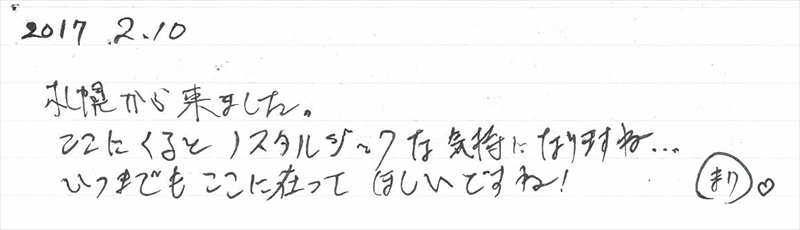 2017 2.10
札幌から来ました。
ここにくるとノスタルジックな気持になりますね...
いつまでもここに在ってほしいですね! まり♡